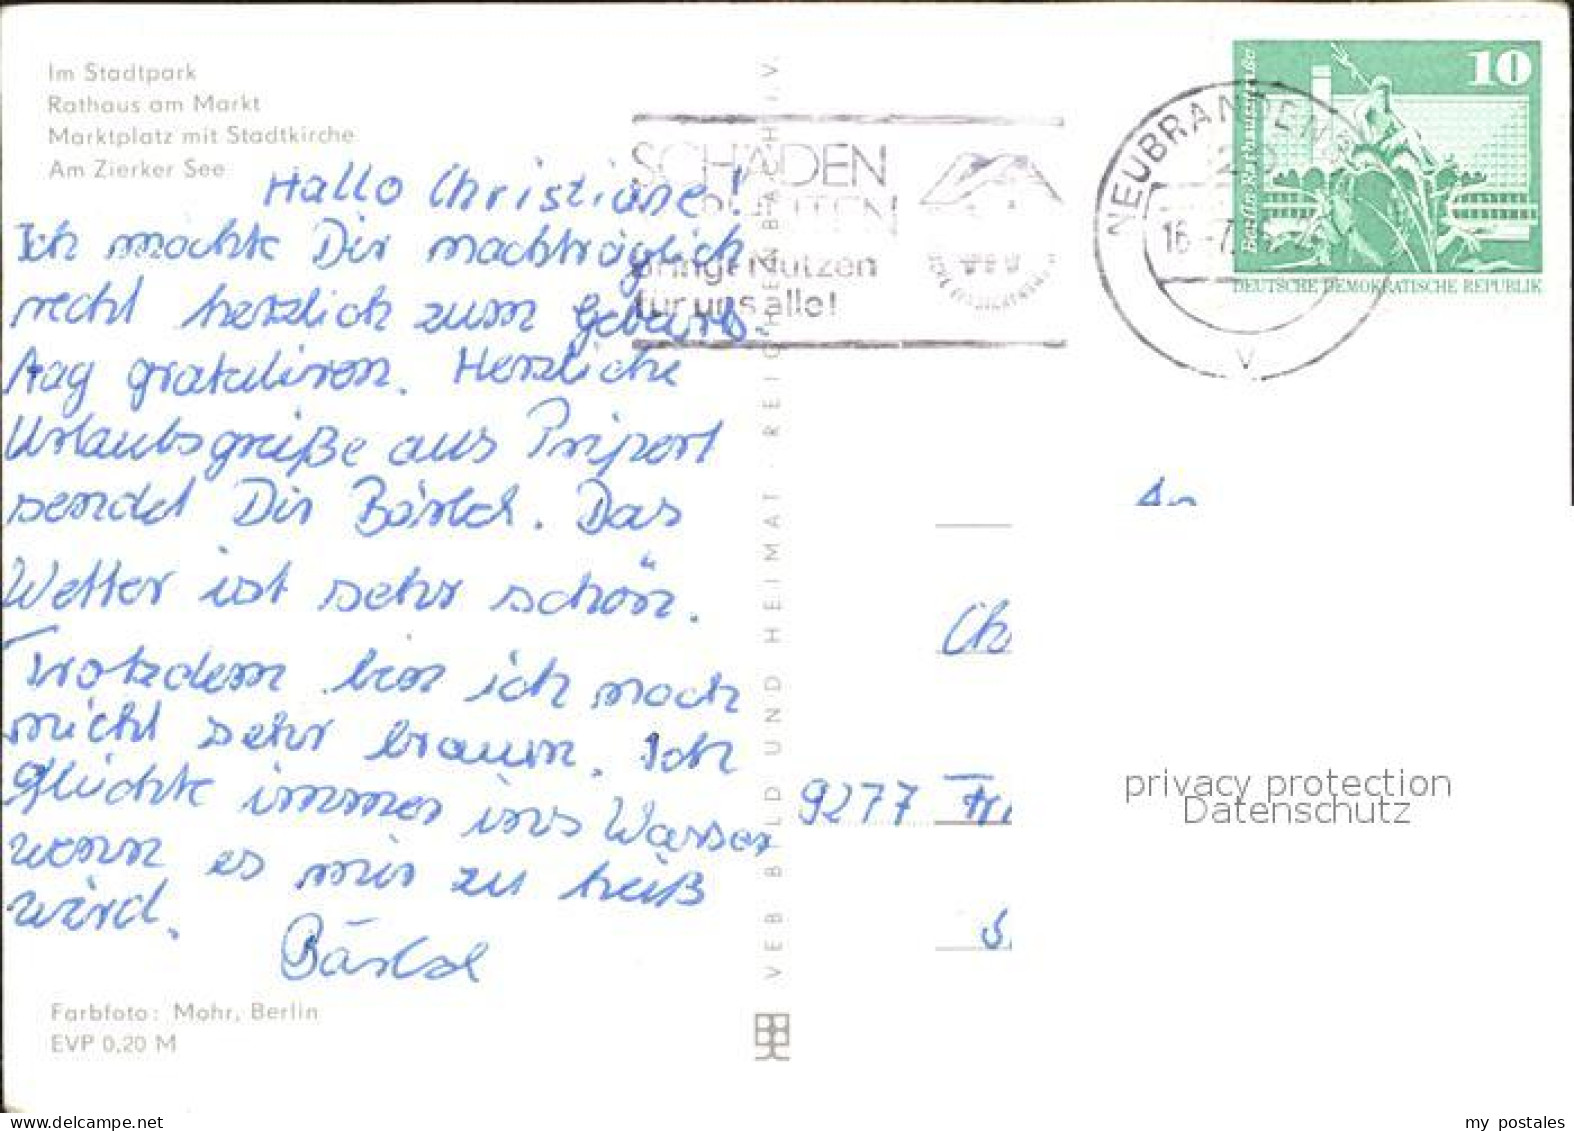 Im Stadtpark
Rathaus am Markt
Marktplatz mit Stadtkirche
Am Zierker See
Hallo Christiane!
Ich möchte Dir nachträglich
recht herzlich zum Geburts-
tag gratulieren. Herzliche
Urlaubsgrüße aus Pripert
sendet Dir Bärbel. Das
Wetter ist sehr schön.
Trotzdem bin ich noch
nicht sehr braun. Ich
flüchte immer ins Wasser
wenn es mir zu heiß
wird.
Bärbel
Farbfoto: Mohr, Berlin
EVP 0,20 M
VEB BILD UND HEIMAT · REICHENBACH I.V.
SCHÄDEN
bringt Nutzen
für uns alle!
NEUBRANDENB
16.-7.
V
10
Berlin-Rathausstraße
DEUTSCHE DEMOKRATISCHE REPUBLIK
An
Ch
9277
privacy protection
Datenschutz
my postales